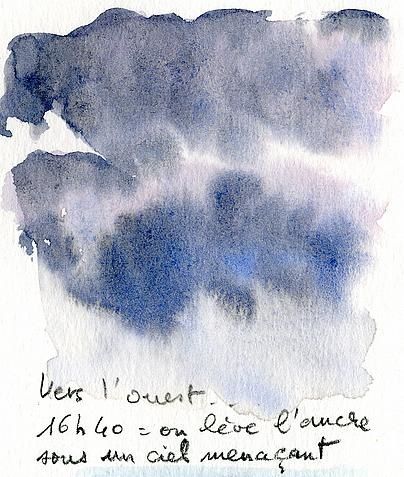 Vers l'ouest...
16h40 = on lève l'ancre
sous un ciel menaçant